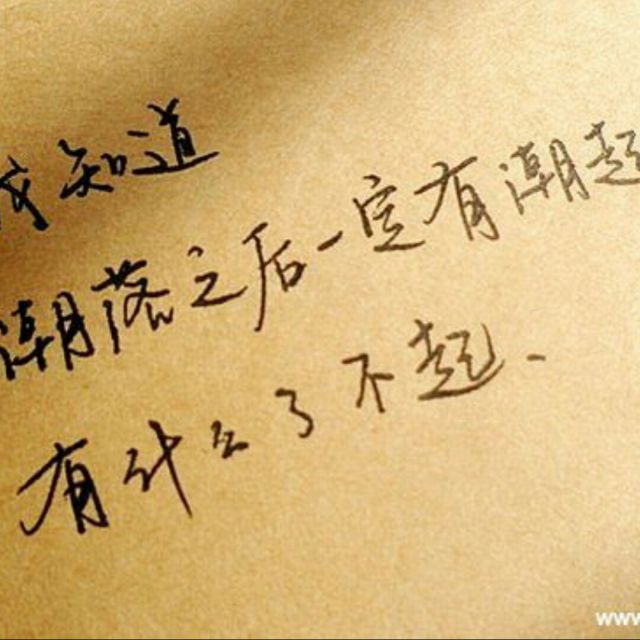 我知道
潮落之后一定有潮起
有什么了不起.
www